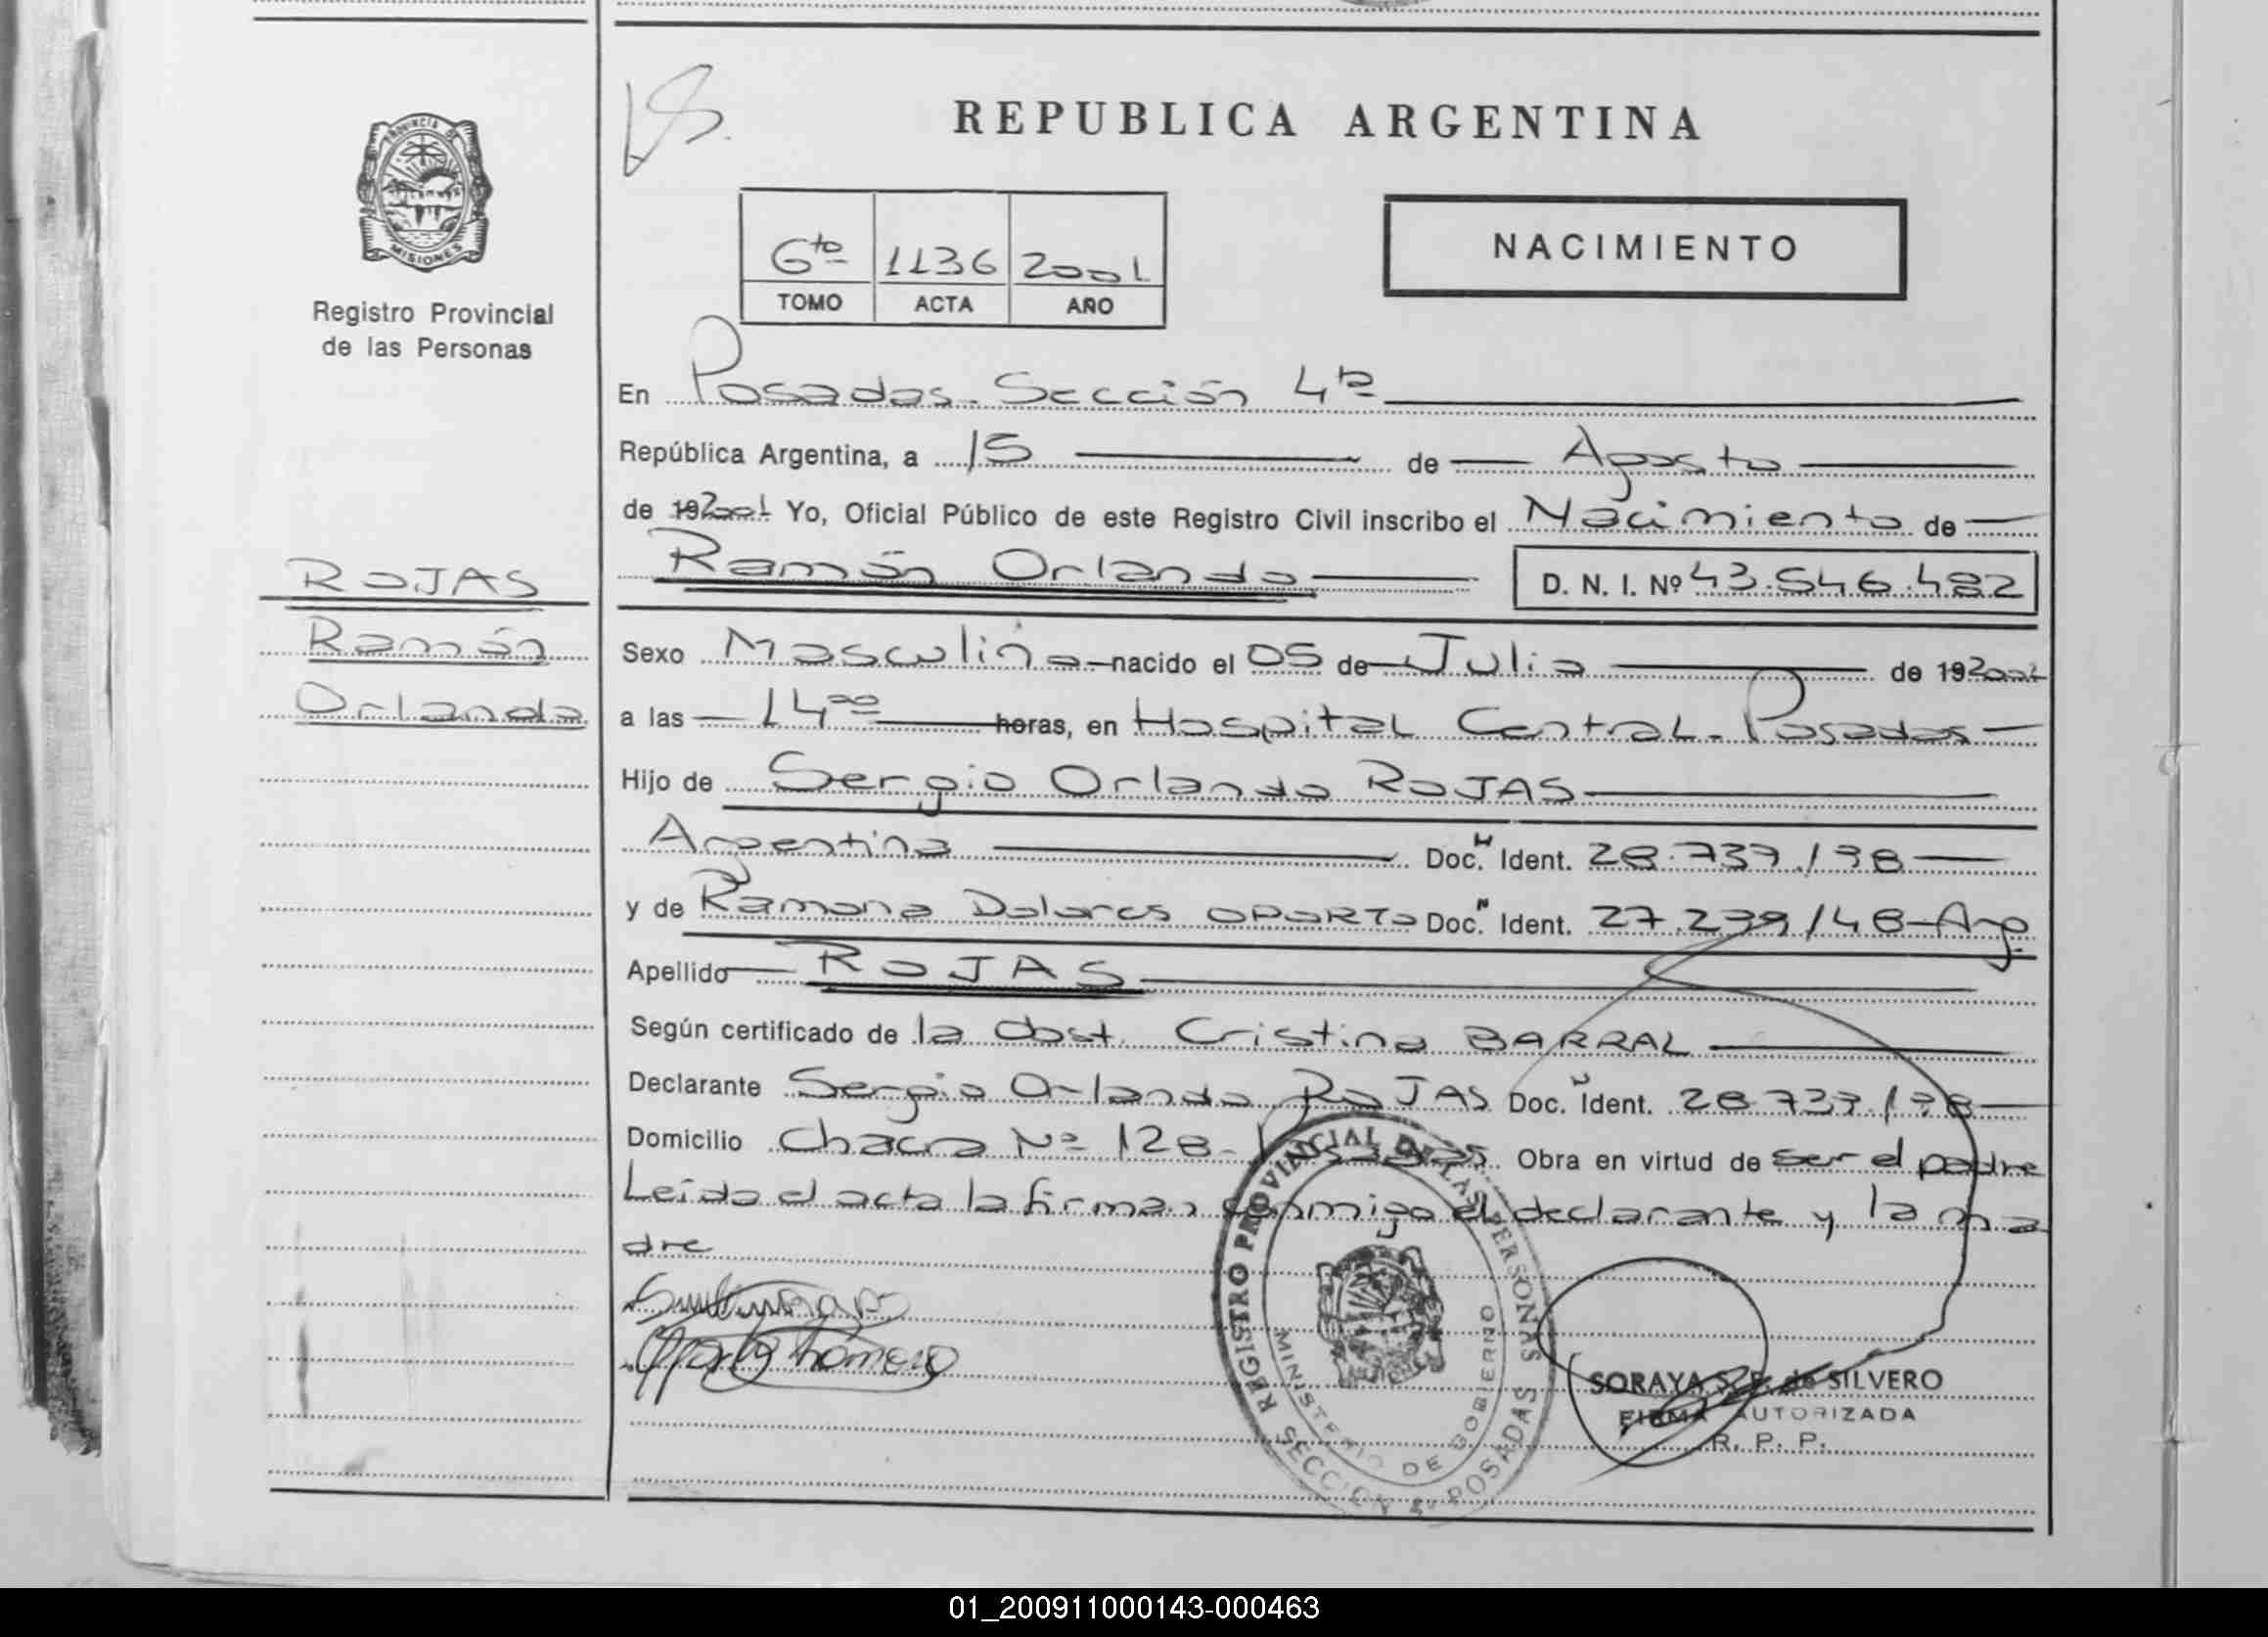 REPUBLICA ARGENTINA
PROVINCIA DE
MISIONES
Registro Provincial
de las Personas
NACIMIENTO
6to 1136 2001
TOMO ACTA AÑO
En Posadas-Sección 4ta
República Argentina, a 15 de Agosto
de 192001 Yo, Oficial Público de este Registro Civil inscribo el Nacimiento de
Ramón Orlando D. N. I. Nº 43.546.482
ROJAS
Ramón
Orlando
Sexo Masculino nacido el 05 de Julio de 192001
a las 14oo horas, en Hospital Central-Posadas
Hijo de Sergio Orlando ROJAS
Argentina Doc. Ident. 28.737.198
y de Ramona Dolores OPORTO Doc. Ident. 27.239/48-Arg.
Apellido ROJAS
Según certificado de la Obst. Cristina BARRAL
Declarante Sergio Orlando ROJAS Doc. Ident.
Domicilio Chacra Nº 128-Posadas Obra en virtud de ser el padre
Leída el acta la firman conmigo el declarante y la ma
dre
REGISTRO PROVINCIAL DE LAS PERSONAS
MINISTERIO DE GOBIERNO
SECCION POSADAS
SORAYA de SILVERO
FIRMA AUTORIZADA
R. P. P.
01_200911000143-000463